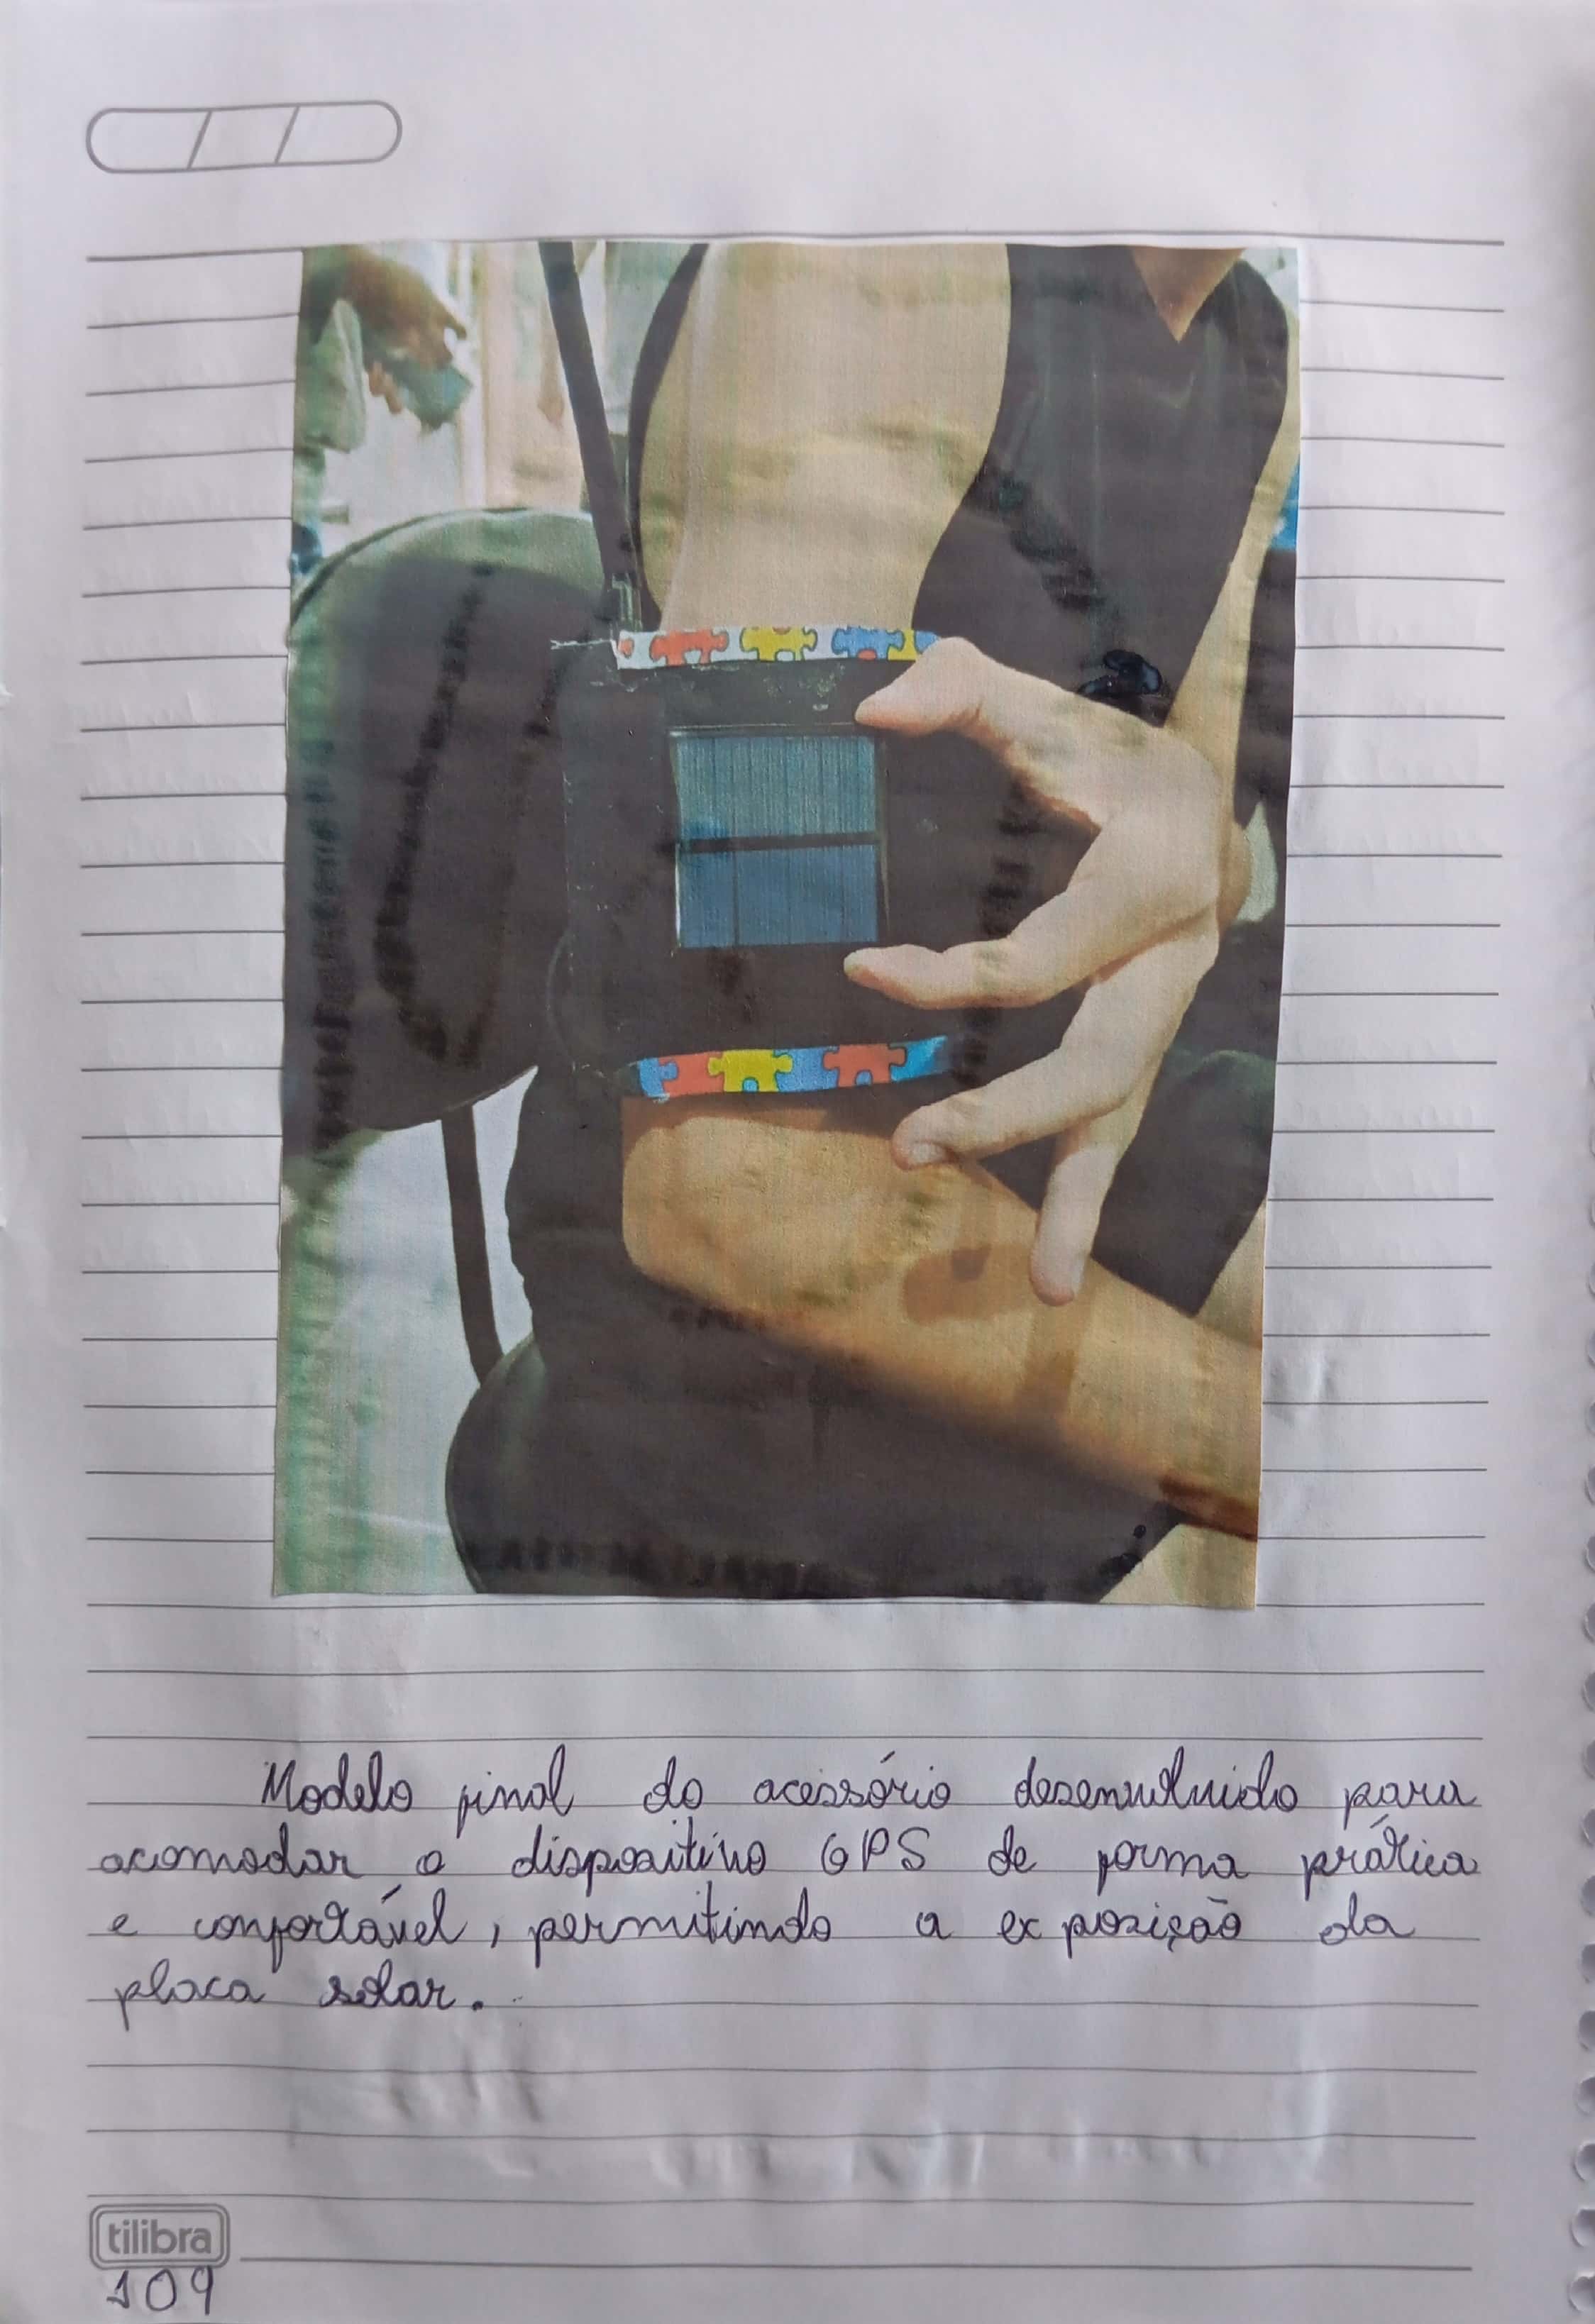 Modelo final do acessório desenvolvido para
acomodar o dispositivo GPS de forma prática
e confortável, permitindo a exposição da
placa solar.
tilibra
109